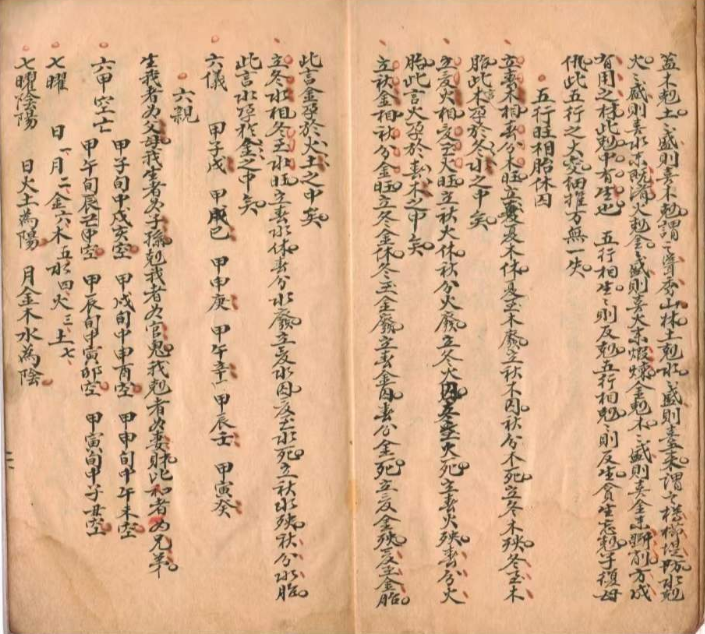 盖木剋土土盛則喜木剋謂之聳秀山林土剋水水盛則喜土來謂之
火火盛則喜水未既濟火剋金金盛則喜火來煅煉金剋木木盛則喜金來斲削方成
有用之材此剋中有生也 五行相生生則反剋五行相剋剋則反生貪生忘剋子復母
仇此五行之大交細推万無一失
五行旺相胎休囚
立春木相春分木旺立夏木休夏至木廢立秋木囚秋分木死立冬木殃冬至木
胎此木孕於冬水之中矣
立夏火相夏至火旺立秋火休秋分火廢立冬火囚冬至火死立春火殃春分火
胎此言火孕於春木之中矣
立秋金相秋分金旺立冬金休冬至金廢立春金囚春分金死立夏金殃夏至金胎
此言金孕於火土之中矣
立冬水相冬至水旺立春水休春分水廢立夏水囚夏至水死立秋水殃秋分水胎
此言水孕於金之中矣
六儀 甲子戊 甲戌己 甲申庚 甲午辛 甲辰壬 甲寅癸
六親
生我者为父母我生者为子孫剋我者为官鬼我剋者为妻財比和者为兄弟
六甲空亡 甲子旬中戌亥空 甲戌旬中申酉空 甲申旬中午未空
甲午旬辰巳中空 甲辰旬中寅卯空 甲寅旬中子丑空
七曜 日一 月二 金六 木五 水四 火三 土七
七曜陰陽 日火土為陽 月金木水為陰